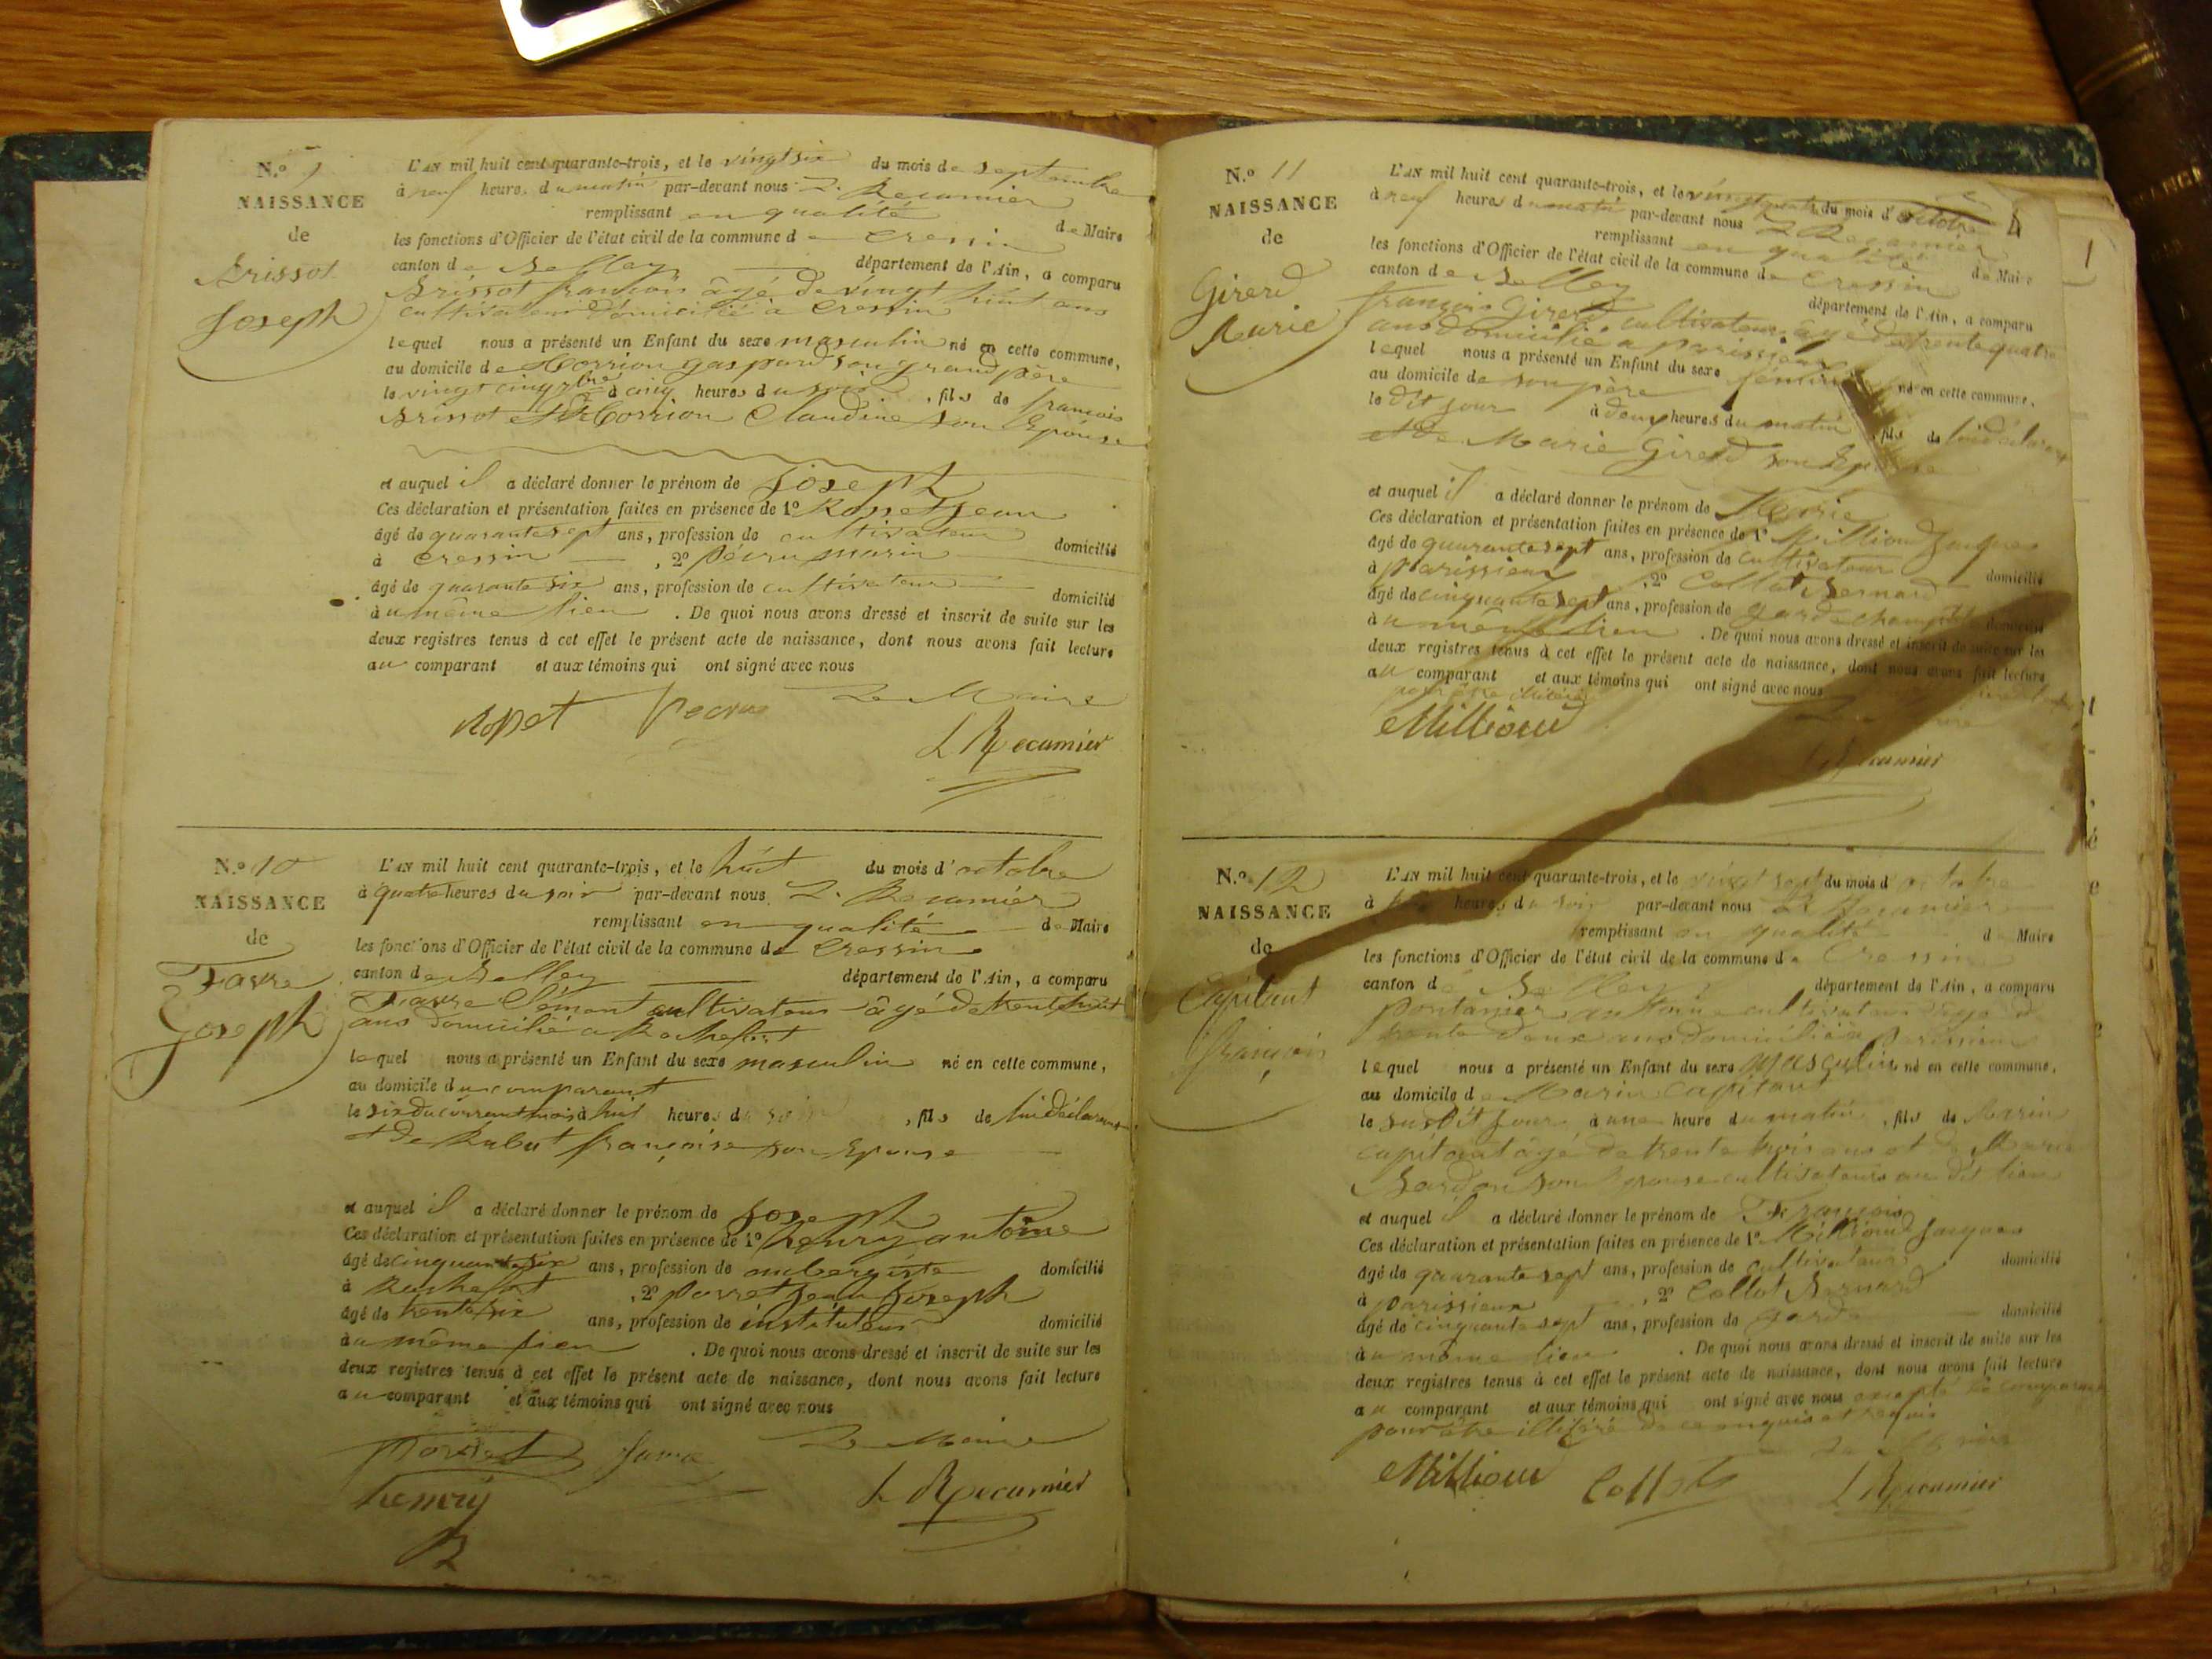 N.º 9
NAISSANCE
de
Brissot
Joseph
L'AN mil huit cent quarante-trois, et le vingt six du mois de septembre
à neuf heures du matin par-devant nous L. Recamier
remplissant en qualité de Maire
les fonctions d'Officier de l'état civil de la commune de Cressin
canton de Belley département de l'Ain, a comparu
Brissot françois âgé de vingt huit ans
cultivateur domicilié à Cressin
lequel nous a présenté un Enfant du sexe masculin né en cette commune,
au domicile de Morrion gaspard son grand père
le vingt cinq 7bre à cinq heures du soir, fils de francois
Brissot et de Morrion Claudine son Epouse
et auquel il a déclaré donner le prénom de Joseph
Ces déclaration et présentation faites en présence de 1º Rosset Jean
âgé de quarante sept ans, profession de cultivateur domicilié
à Cressin, 2º Pécru marin
âgé de quarante six ans, profession de cultivateur domicilié
au même lieu. De quoi nous avons dressé et inscrit de suite sur les
deux registres tenus à cet effet le présent acte de naissance, dont nous avons fait lecture
au comparant et aux témoins qui ont signé avec nous
Le Maire
Rosset Pecru
L Recamier
N.º 10
NAISSANCE
de
Favre
Joseph
L'AN mil huit cent quarante-trois, et le huit du mois d'octobre
à quatre heures du soir par-devant nous L. Recamier
remplissant en qualité de Maire
les fonctions d'Officier de l'état civil de la commune de Cressin
canton de Belley département de l'Ain, a comparu
Favre Clément cultivateur âgé de trente huit
ans domicilié a Rochefort
lequel nous a présenté un Enfant du sexe masculin né en cette commune,
au domicile du comparant
le six du courant mois à huit heures du soir, fils de lui déclarant
et de françoise son Epouse
et auquel il a déclaré donner le prénom de Joseph
Ces déclaration et présentation faites en présence de 1º henry antoine
âgé de cinquante six ans, profession de aubergiste domicilié
à Rochefort, 2º porret Jean Joseph
âgé de trente six ans, profession de instituteur domicilié
au même lieu. De quoi nous avons dressé et inscrit de suite sur les
deux registres tenus à cet effet le présent acte de naissance, dont nous avons fait lecture
au comparant et aux témoins qui ont signé avec nous
Porret favre Le Maire
henry L Recamier
N.º 11
NAISSANCE
de
Girerd
Marie
L'AN mil huit cent quarante-trois, et le vingt quatre du mois d'octobre
à neuf heures du matin par-devant nous L Recamier
remplissant en qualité de Maire
les fonctions d'Officier de l'état civil de la commune de Cressin
canton de Belley département de l'Ain, a comparu
françois Girerd cultivateur âgé de trente quatre
ans domicilié a parissieux
lequel nous a présenté un Enfant du sexe féminin né en cette commune,
au domicile de son père
le dit jour à deux heures du matin, fils de lui déclarant
et de Marie Girerd son Epouse
et auquel il a déclaré donner le prénom de Marie
Ces déclaration et présentation faites en présence de 1º Milliond Jacques
âgé de quarante sept ans, profession de cultivateur domicilié
à parissieux, 2º Collot Bernard
âgé de cinquante sept ans, profession de garde champêtre domicilié
au même lieu. De quoi nous avons dressé et inscrit de suite sur les
deux registres tenus à cet effet le présent acte de naissance, dont nous avons fait lecture
au comparant et aux témoins qui ont signé avec nous
Milliond
Recamier
N.º 12
NAISSANCE
de
Capitant
françois
L'AN mil huit cent quarante-trois, et le vingt sept du mois d'octobre
à heures du soir par-devant nous L Recamier
remplissant en qualité de Maire
les fonctions d'Officier de l'état civil de la commune de Cressin
canton de Belley département de l'Ain, a comparu
Pontanier anthoine cultivateur âgé de
trente deux ans domicilié a Parissieux
lequel nous a présenté un Enfant du sexe masculin né en cette commune,
au domicile de Marin Capitant
le susdit jour à une heure du matin, fils de Marin
capitant âgé de trente trois ans et de Marie
son Epouse cultivateurs au dit lieu
et auquel il a déclaré donner le prénom de François
Ces déclaration et présentation faites en présence de 1º Milliond Jacques
âgé de quarante sept ans, profession de cultivateur domicilié
à parissieux, 2º Collot Bernard
âgé de cinquante sept ans, profession de garde domicilié
au même lieu. De quoi nous avons dressé et inscrit de suite sur les
deux registres tenus à cet effet le présent acte de naissance, dont nous avons fait lecture
au comparant et aux témoins qui ont signé avec nous excepté le comparant
pour être illitéré de ce enquis et requis
Le Maire
Milliond Collot L Recamier